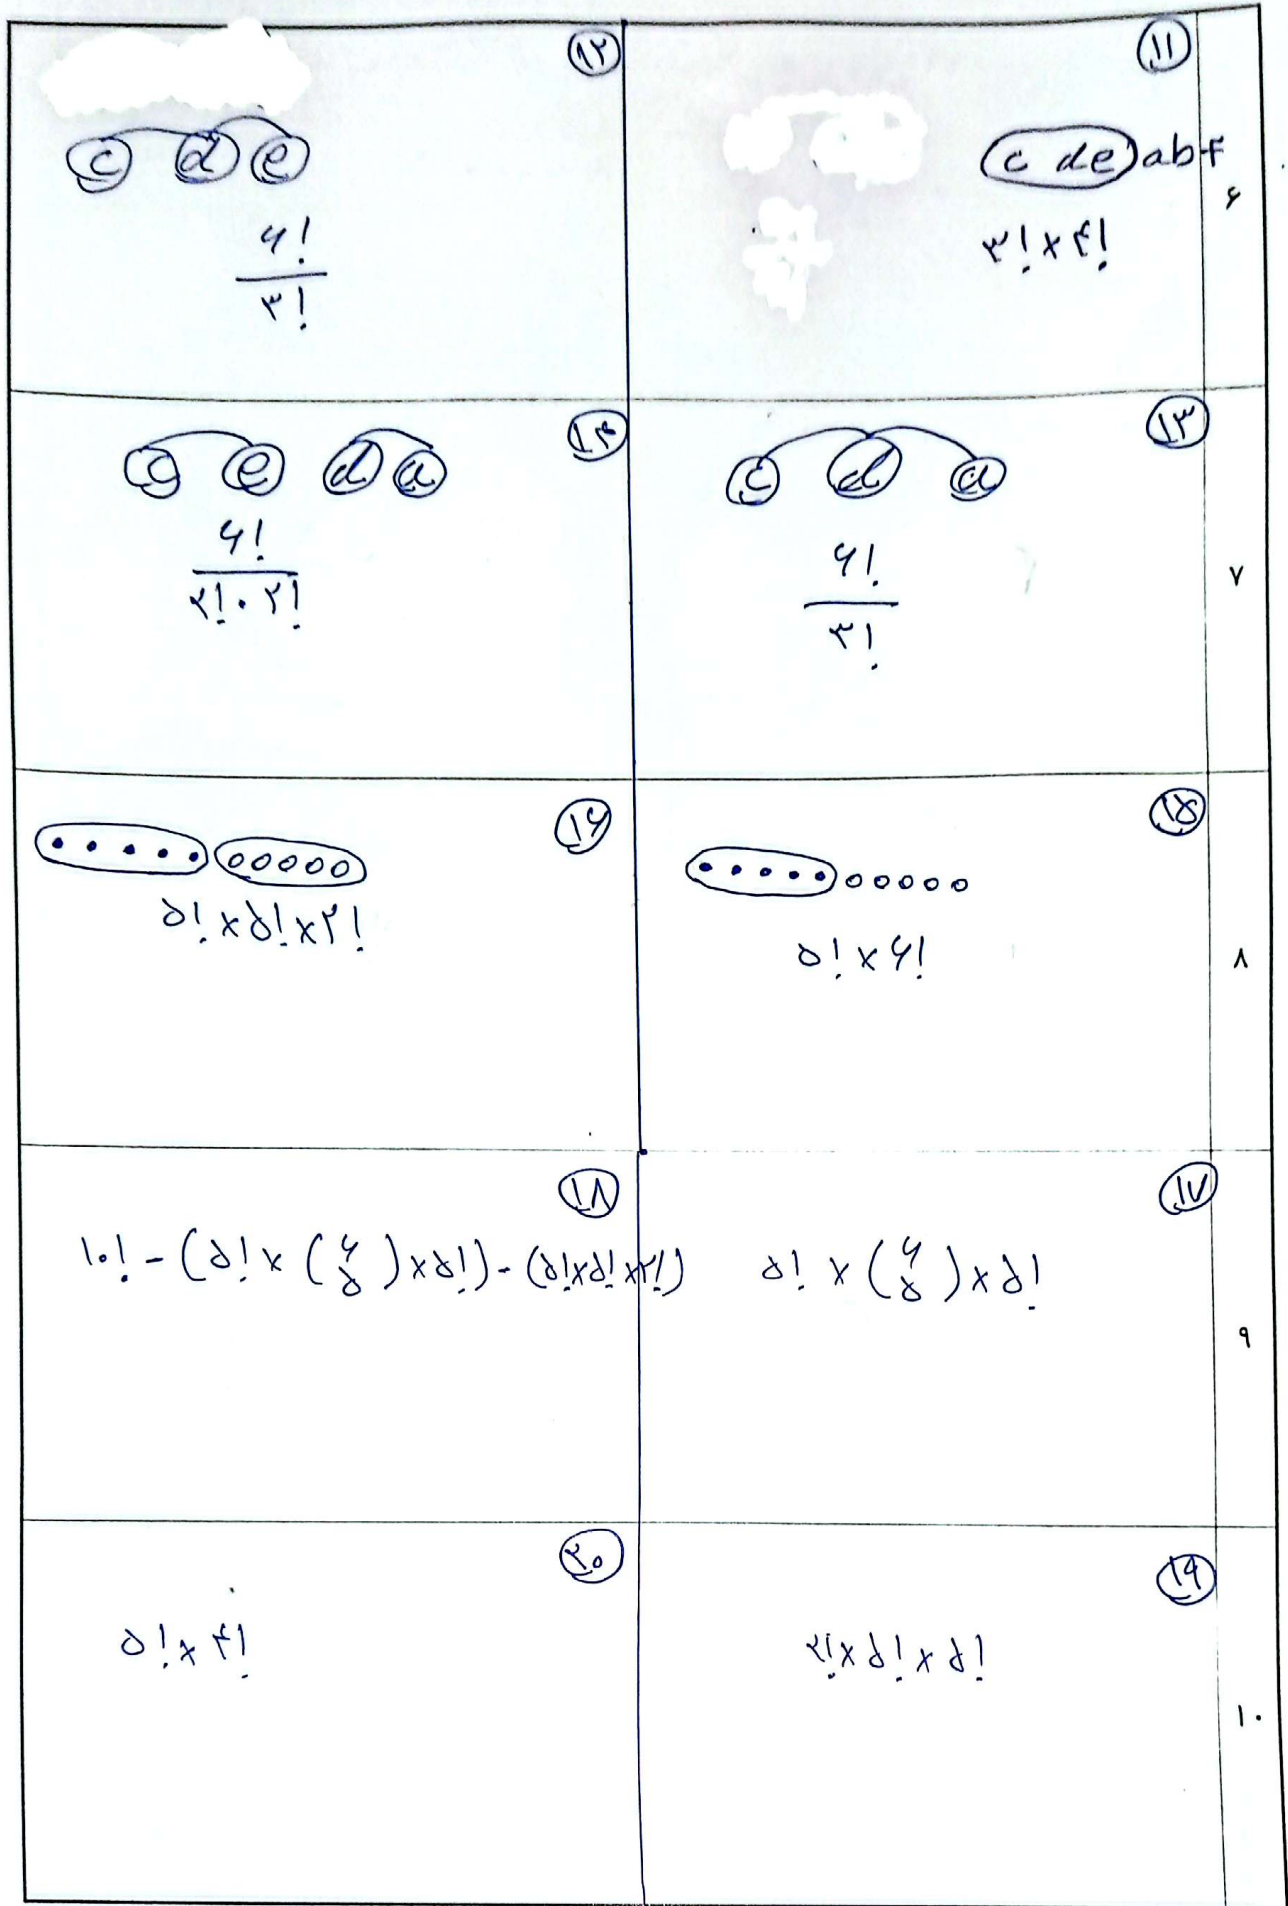 ۱۱
c de abf
۳! × ۴!
۶
۱۲
c d e
۶!
۳!
۱۳
c d a
۶!
۳!
۷
۱۴
c e d a
۶!
۲! . ۲!
۱۵
۵! × ۶!
۸
۱۶
۵! × ۵! × ۲!
۱۷
۵! × (۶ ۵) × ۵!
۹
۱۸
۱۰! - (۵! × (۶ ۵) × ۵!) - (۵! × ۵! × ۲!)
۱۹
۲! × ۵! × ۵!
۱۰
۲۰
۵! × ۴!